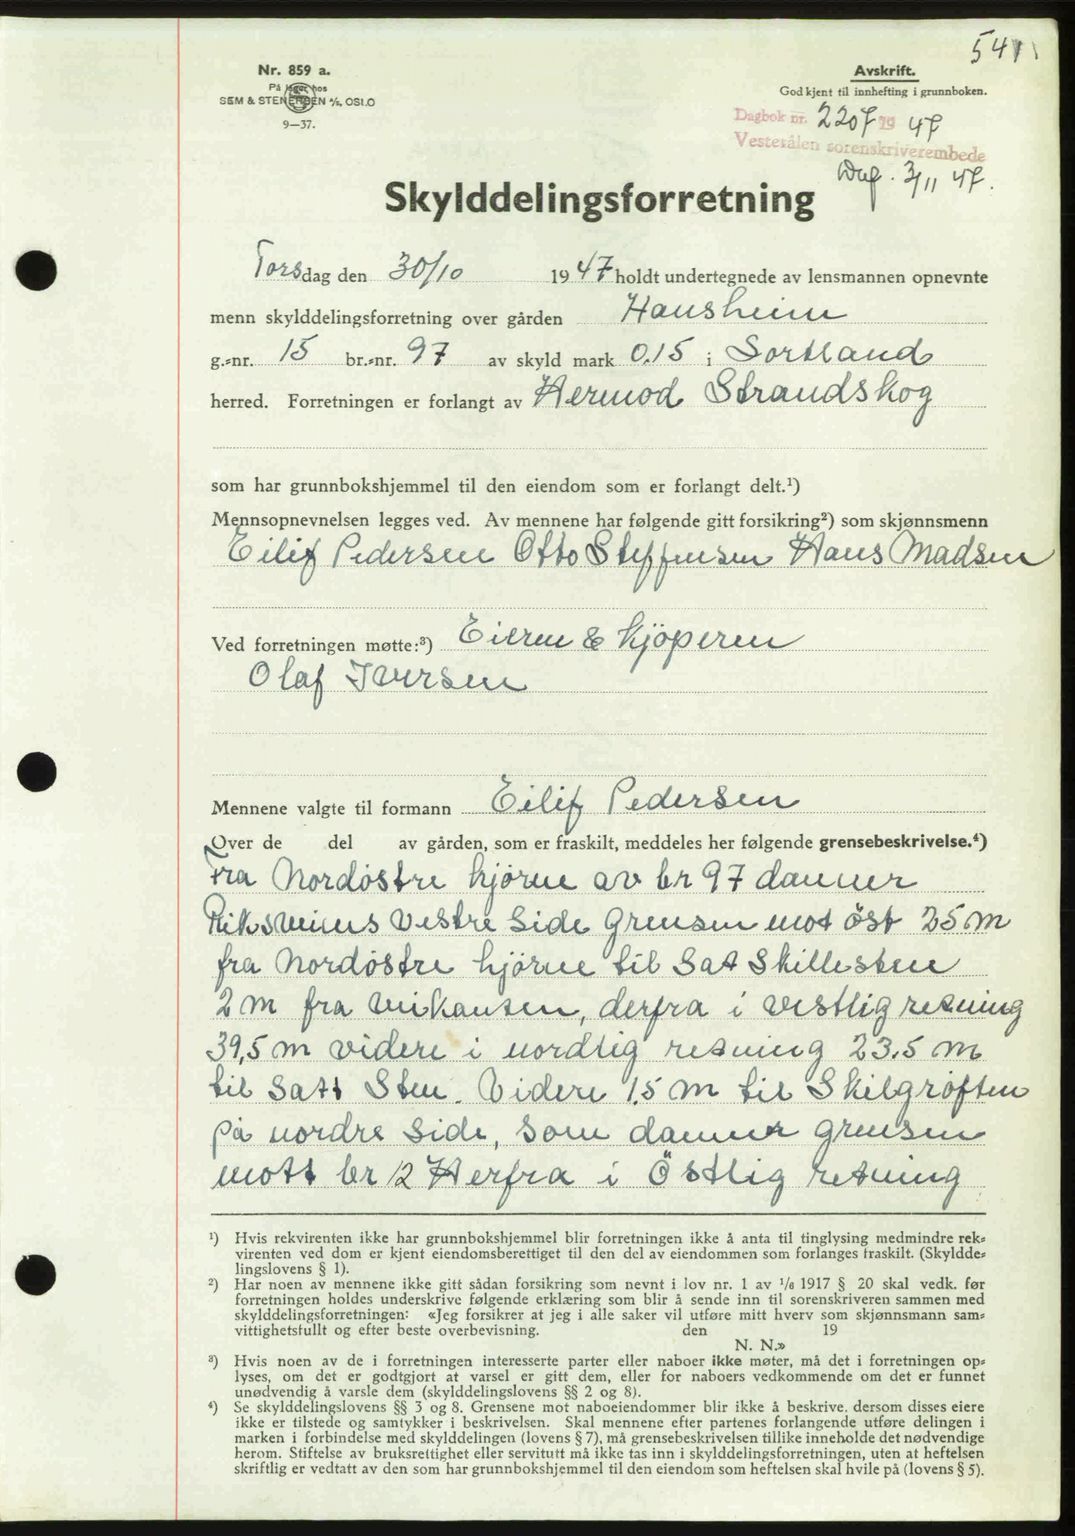 541
Nr. 859 a.
På lager hos
SEM & STENERSEN A/S, OSLO
9—37.
Avskrift.
Godkjent til innhefting i grunnboken.
Dagbok nr. 2207 19 47
Vesterålen sorenskriverembede
Dag. 3/11 47.
Skylddelingsforretning
Torsdag den 30/10 1947 holdt undertegnede av lensmannen opnevnte
menn skylddelingsforretning over gården Hausheim
g.-nr. 15 br.-nr. 97 av skyld mark 0.15 i Sortland
herred. Forretningen er forlangt av Hermod Strandskog
som har grunnbokshjemmel til den eiendom som er forlangt delt.¹)
Mennsopnevnelsen legges ved. Av mennene har følgende gitt forsikring²) som skjønnsmenn
Eilif Pedersen Otto Steffensen Hans Madsen
Ved forretningen møtte:³) Eieren & kjöperen
Olaf Iversen
Mennene valgte til formann Eilif Pedersen
Over de del av gården, som er fraskilt, meddeles her følgende grensebeskrivelse.⁴)
Fra Nordöstre hjörne av br 97 danner
Riksveiens Vestre Side Grensen mot öst 25 m
fra Nordöstre hjörne til Sat Skillesten
2 m fra veikanten, derfra i vestlig retning
39,5 m videre i nordlig retning 23.5 m
til Satt Sten. Videre 1.5 m til Skilgröften
på nordre Side, Som danner grensen
mott br 12 Herfra i Östlig retning
¹) Hvis rekvirenten ikke har grunnbokshjemmel blir forretningen ikke å anta til tinglysing medmindre rek-
virenten ved dom er kjent eiendomsberettiget til den del av eiendommen som forlanges fraskilt. (Skyldde-
lingslovens § 1).
²) Har noen av mennene ikke gitt sådan forsikring som nevnt i lov nr. 1 av ¹/₆ 1917 § 20 skal vedk. før
forretningen holdes underskrive følgende erklæring som blir å sende inn til sorenskriveren sammen med
skylddelingsforretningen: «Jeg forsikrer at jeg i alle saker vil utføre mitt hverv som skjønnsmann sam-
vittighetsfullt og efter beste overbevisning. den 19
N. N.»
³) Hvis noen av de i forretningen interesserte parter eller naboer ikke møter, må det i forretningen op-
lyses, om det er godtgjort at varsel er gitt dem, eller for naboers vedkommende om det er funnet
unødvendig å varsle dem (skylddelingslovens §§ 2 og 8).
⁴) Se skylddelingslovens §§ 3 og 8. Grensene mot naboeiendommer blir ikke å beskrive, dersom disses eiere
ikke er tilstede og samtykker i beskrivelsen. Skal mennene efter partenes forlangende utføre delingen i
marken i forbindelse med skylddelingen (lovens § 7), må grensebeskrivelsen tillike inneholde det nødvendige
herom. Stiftelse av bruksrettighet eller servitutt må ikke tas inn i skylddelingsforretningen, uten at heftelsen
skriftlig er vedtatt av den som har grunnbokshjemmel til den eiendom som heftelsen skal hvile på (lovens § 5).